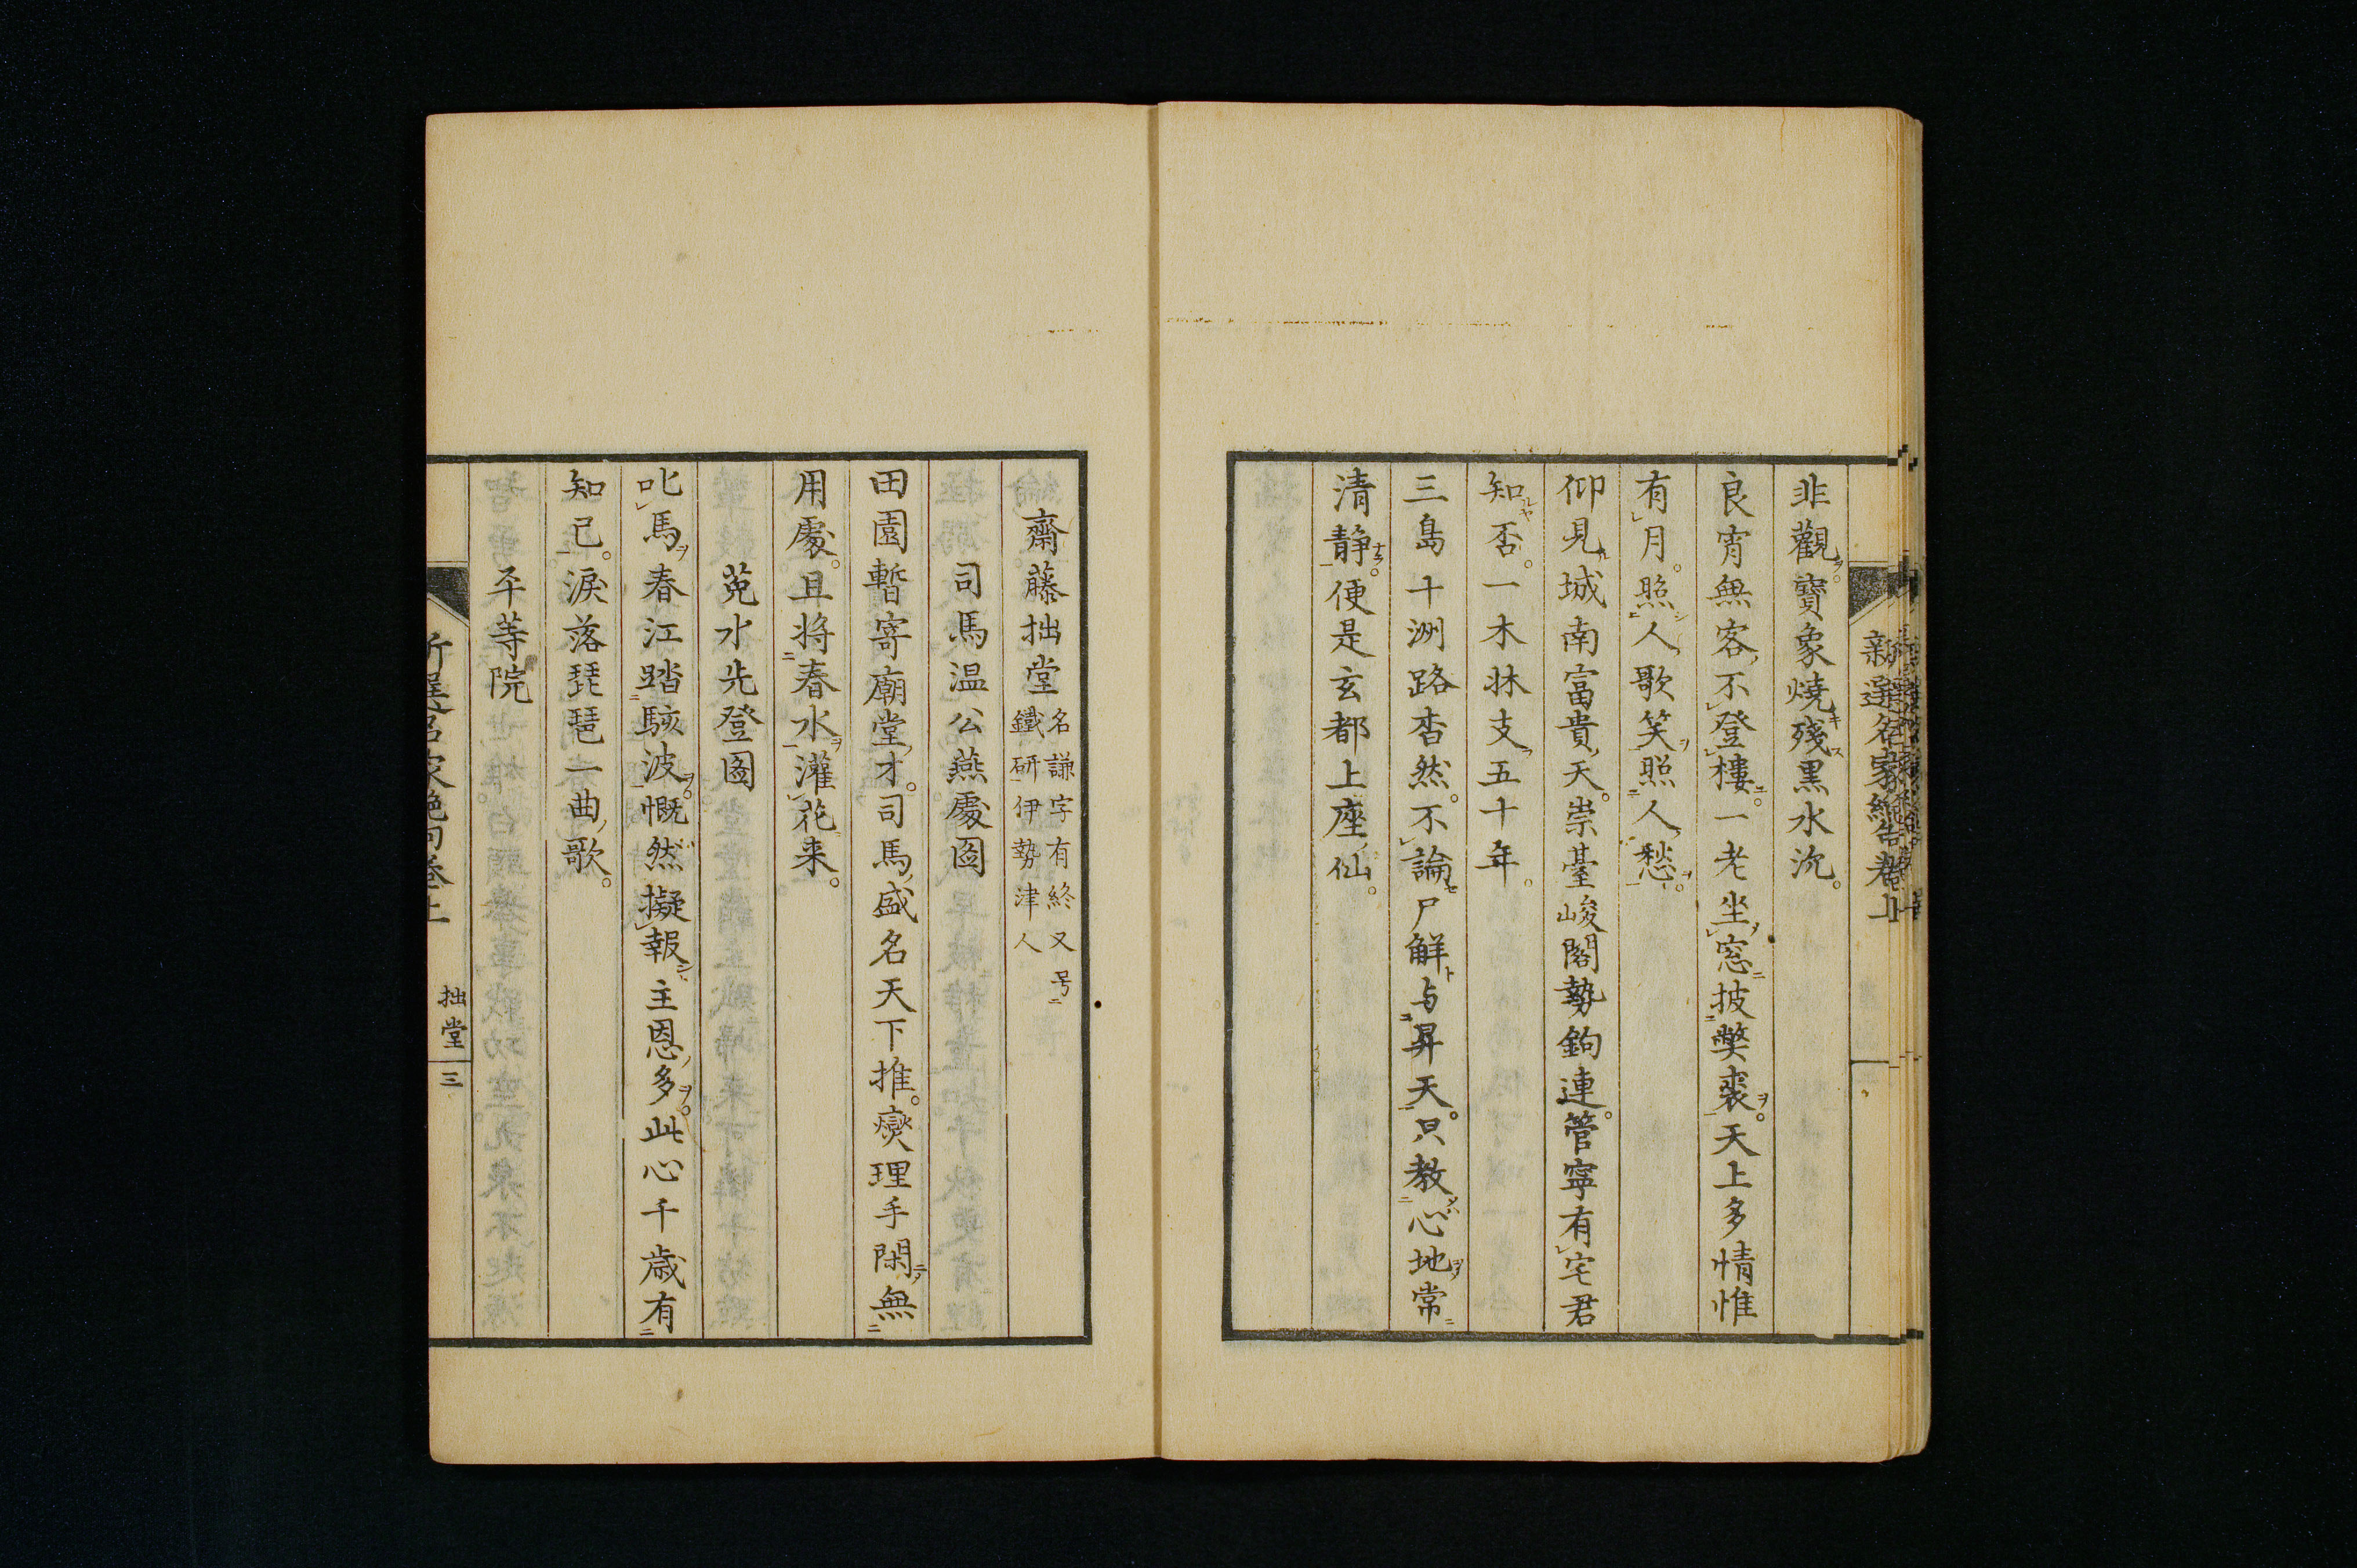 新選名家絶句卷上
非觀寶象燒殘黒水沉
良宵無客不登樓一老坐窓披弊裘天上多情惟
有月照人歌笑照人愁
仰見城南富貴天崇臺峻閣勢鉤連管寧有宅君
知否一木牀支五十年
三島十洲路杳然不論尸解与昇天只教心地常
清静便是玄都上座仙
齋藤拙堂
名謙字有終又号
鐵研伊勢津人
司馬温公燕處圖
田園暫寄廟堂才司馬盛名天下推燮理手閑無
用處且将春水灌花来
菟水先登圖
叱馬春江踏駭波慨然擬報主恩多此心千歳有
知己淚落琵琶一曲歌
平等院
拙堂
三